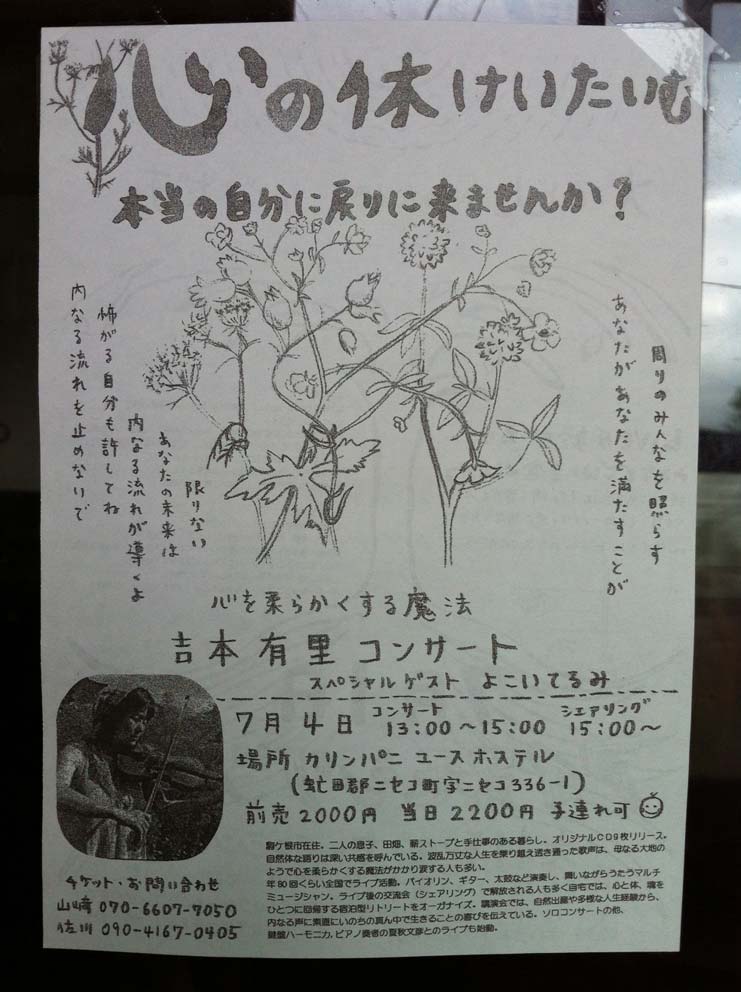 心の休けいたいむ
本当の自分に戻りに来ませんか？
周りのみんなを照らす
あなたがあなたを満たすことが
限りない
あなたの未来は
内なる流れが導くよ
怖がる自分も許してね
内なる流れを止めないで
心を柔らかくする魔法
吉本有里コンサート
スペシャルゲスト よこいてるみ
7月4日 コンサート 13:00～15:00 シェアリング 15:00～
場所 カリンパニ ユースホステル
(虻田郡ニセコ町字ニセコ336-1)
前売2000円 当日2200円 子連れ可
駒ケ根市在住。二人の息子、田畑、薪ストーブと手仕事のある暮らし。オリジナルCD9枚リリース。
自然体な語りは深い共感を呼んでいる。波乱万丈な人生を乗り越え透き通った歌声は、母なる大地の
ように心を柔らかくする魔法がかかり涙する人も多い。
年80回くらい全国でライブ活動。バイオリン、ギター、太鼓など演奏し、舞いながらうたうマルチ
ミュージシャン。ライブ後の交流会（シェアリング）で解放される人も多く自宅では、心と体、魂を
ひとつに回帰する宿泊型リトリートをオーガナイズ。講演会では、自然出産や多様な人生経験から、
内なる声に素直にいのちの真ん中で生きることの喜びを伝えている。ソロコンサートの他、
鍵盤ハーモニカ、ピアノ奏者の夏秋文彦とのライブも始動。
チケット・お問い合わせ
山崎 070-6607-7050
佐川 090-4167-0405